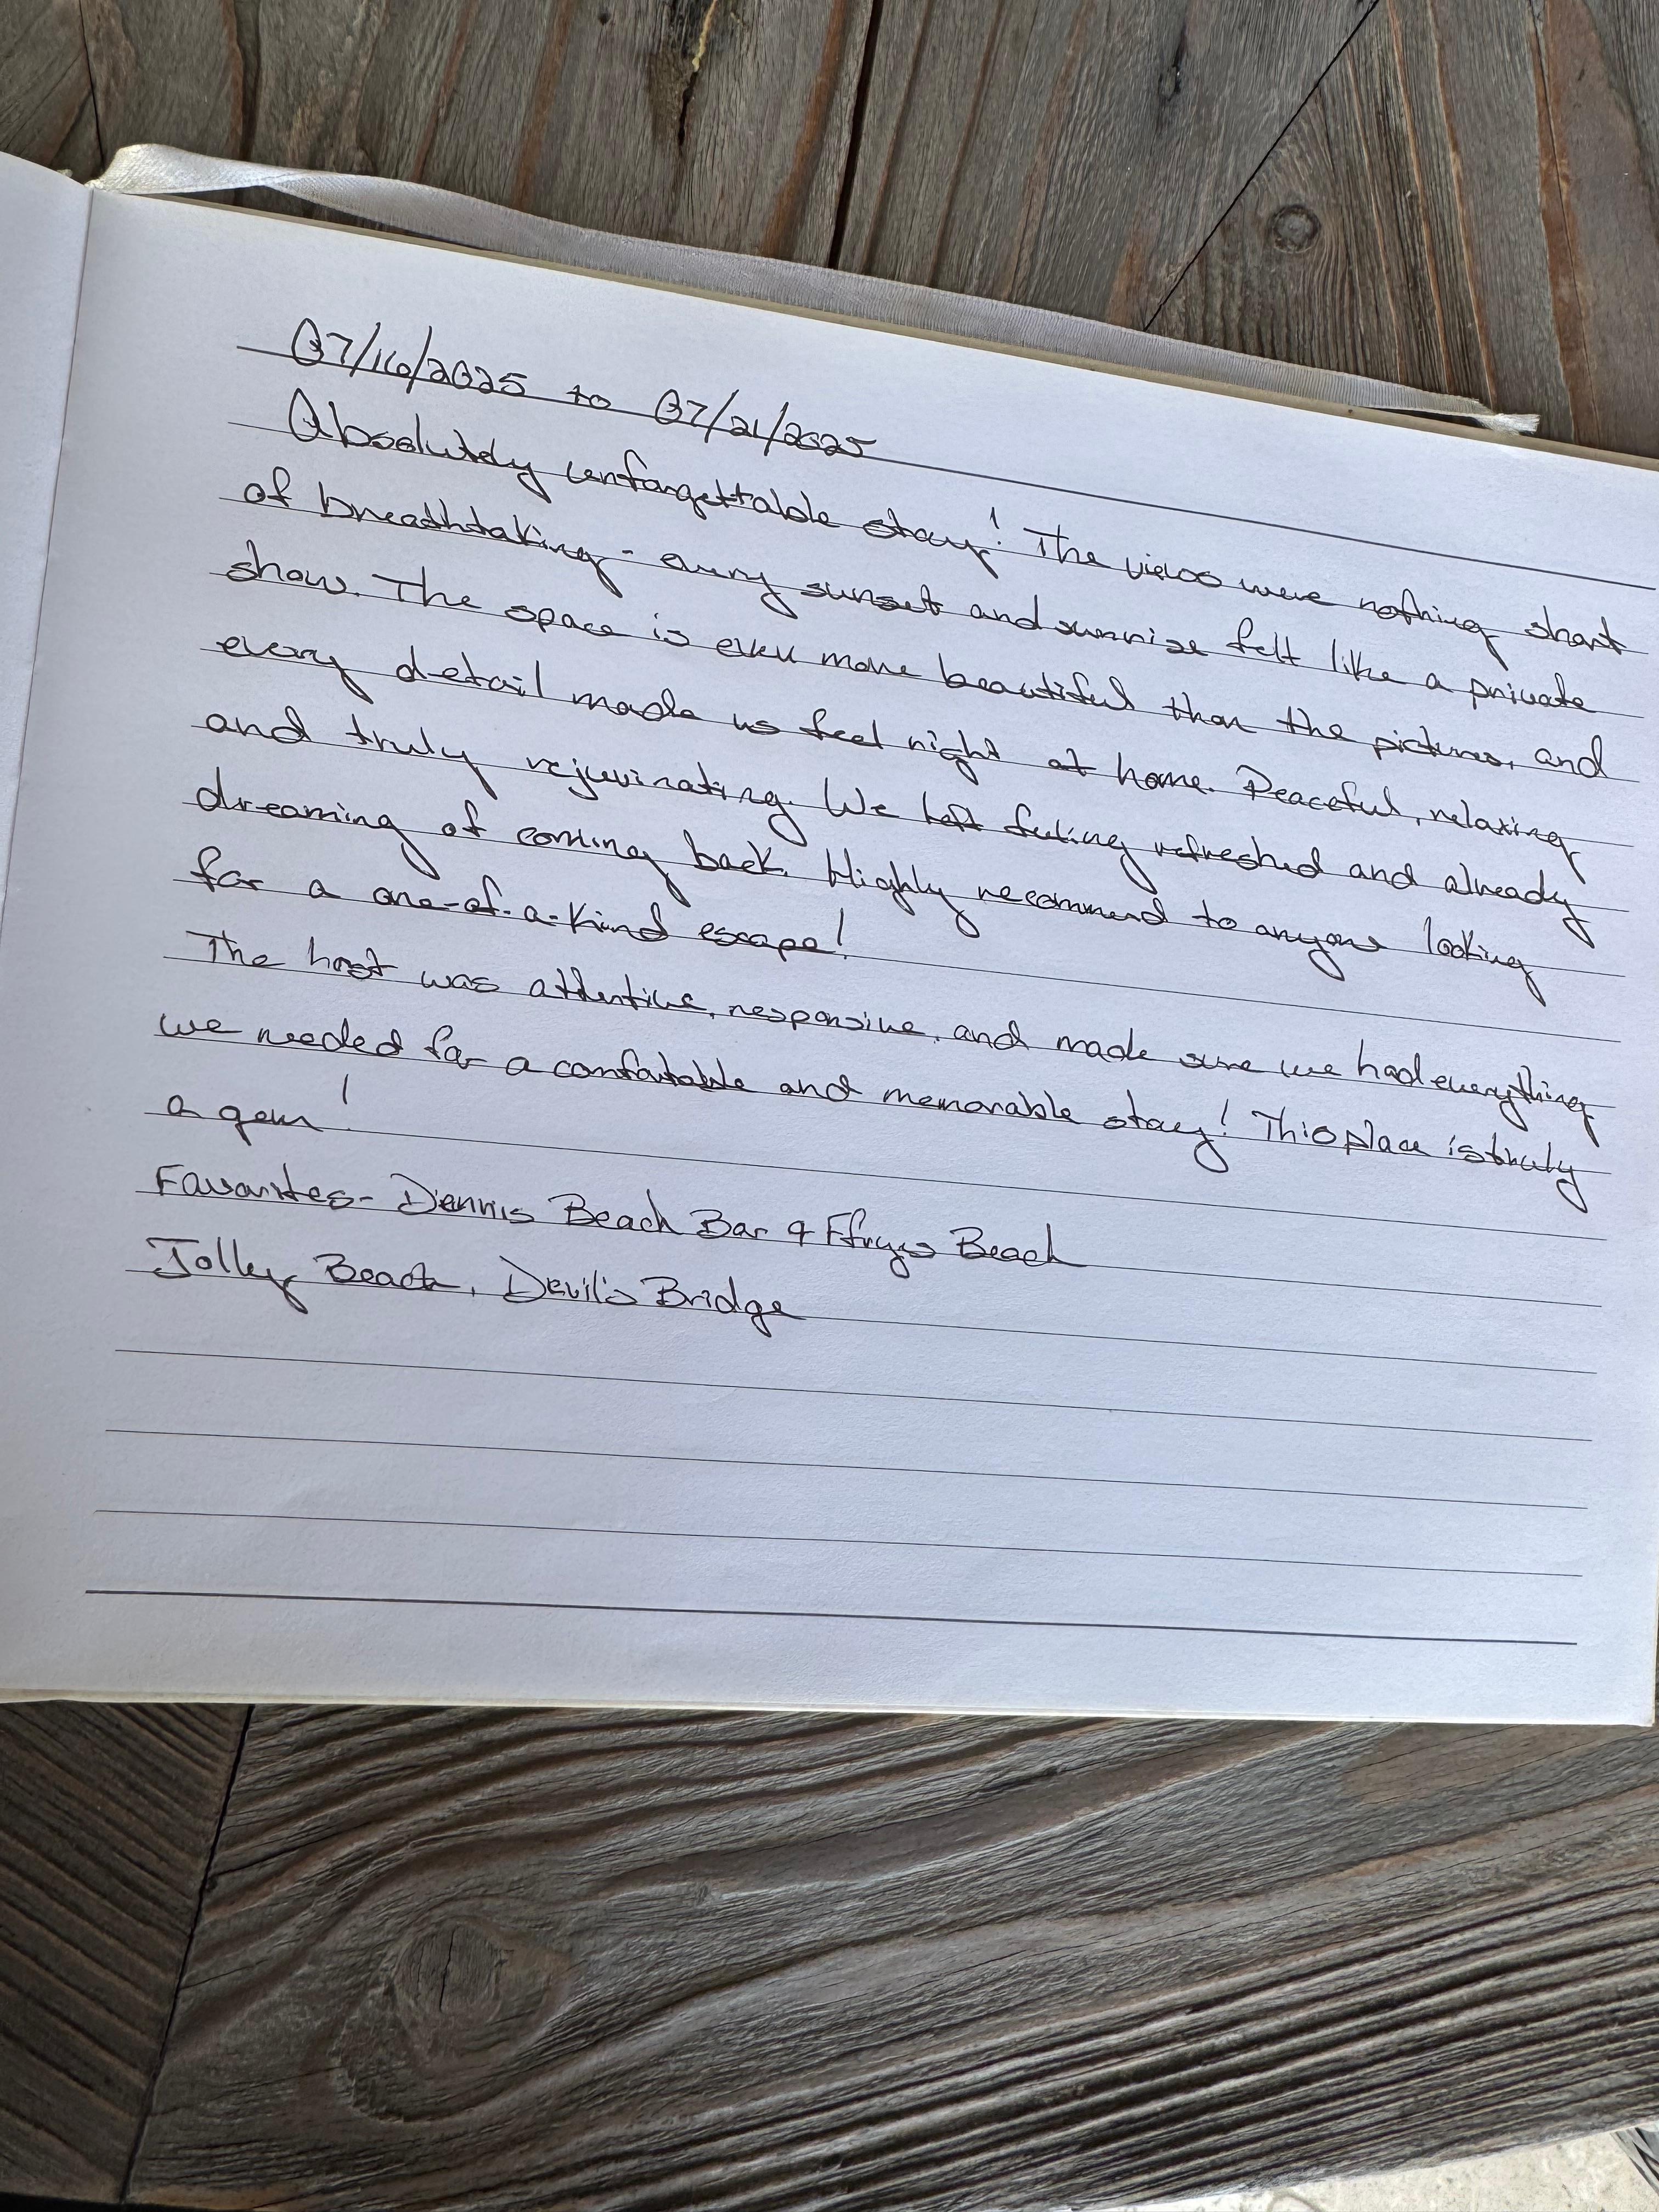 07/16/2025 to 07/21/2025
Absolutely unforgettable stay! The views were nothing short
of breathtaking - every sunset and sunrise felt like a private
show. The space is even more beautiful than the pictures, and
every detail made us feel right at home. Peaceful, relaxing
and truly rejuvinating. We left feeling refreshed and already
dreaming of coming back. Highly recommend to anyone looking
for a one-of-a-kind escape!
The host was attentive, responsive, and made sure we had everything
we needed for a comfortable and memorable stay! This place is truly
a gem!
Favorites - Dennis Beach Bar & Ffryes Beach
Jolley Beach, Devil's Bridge